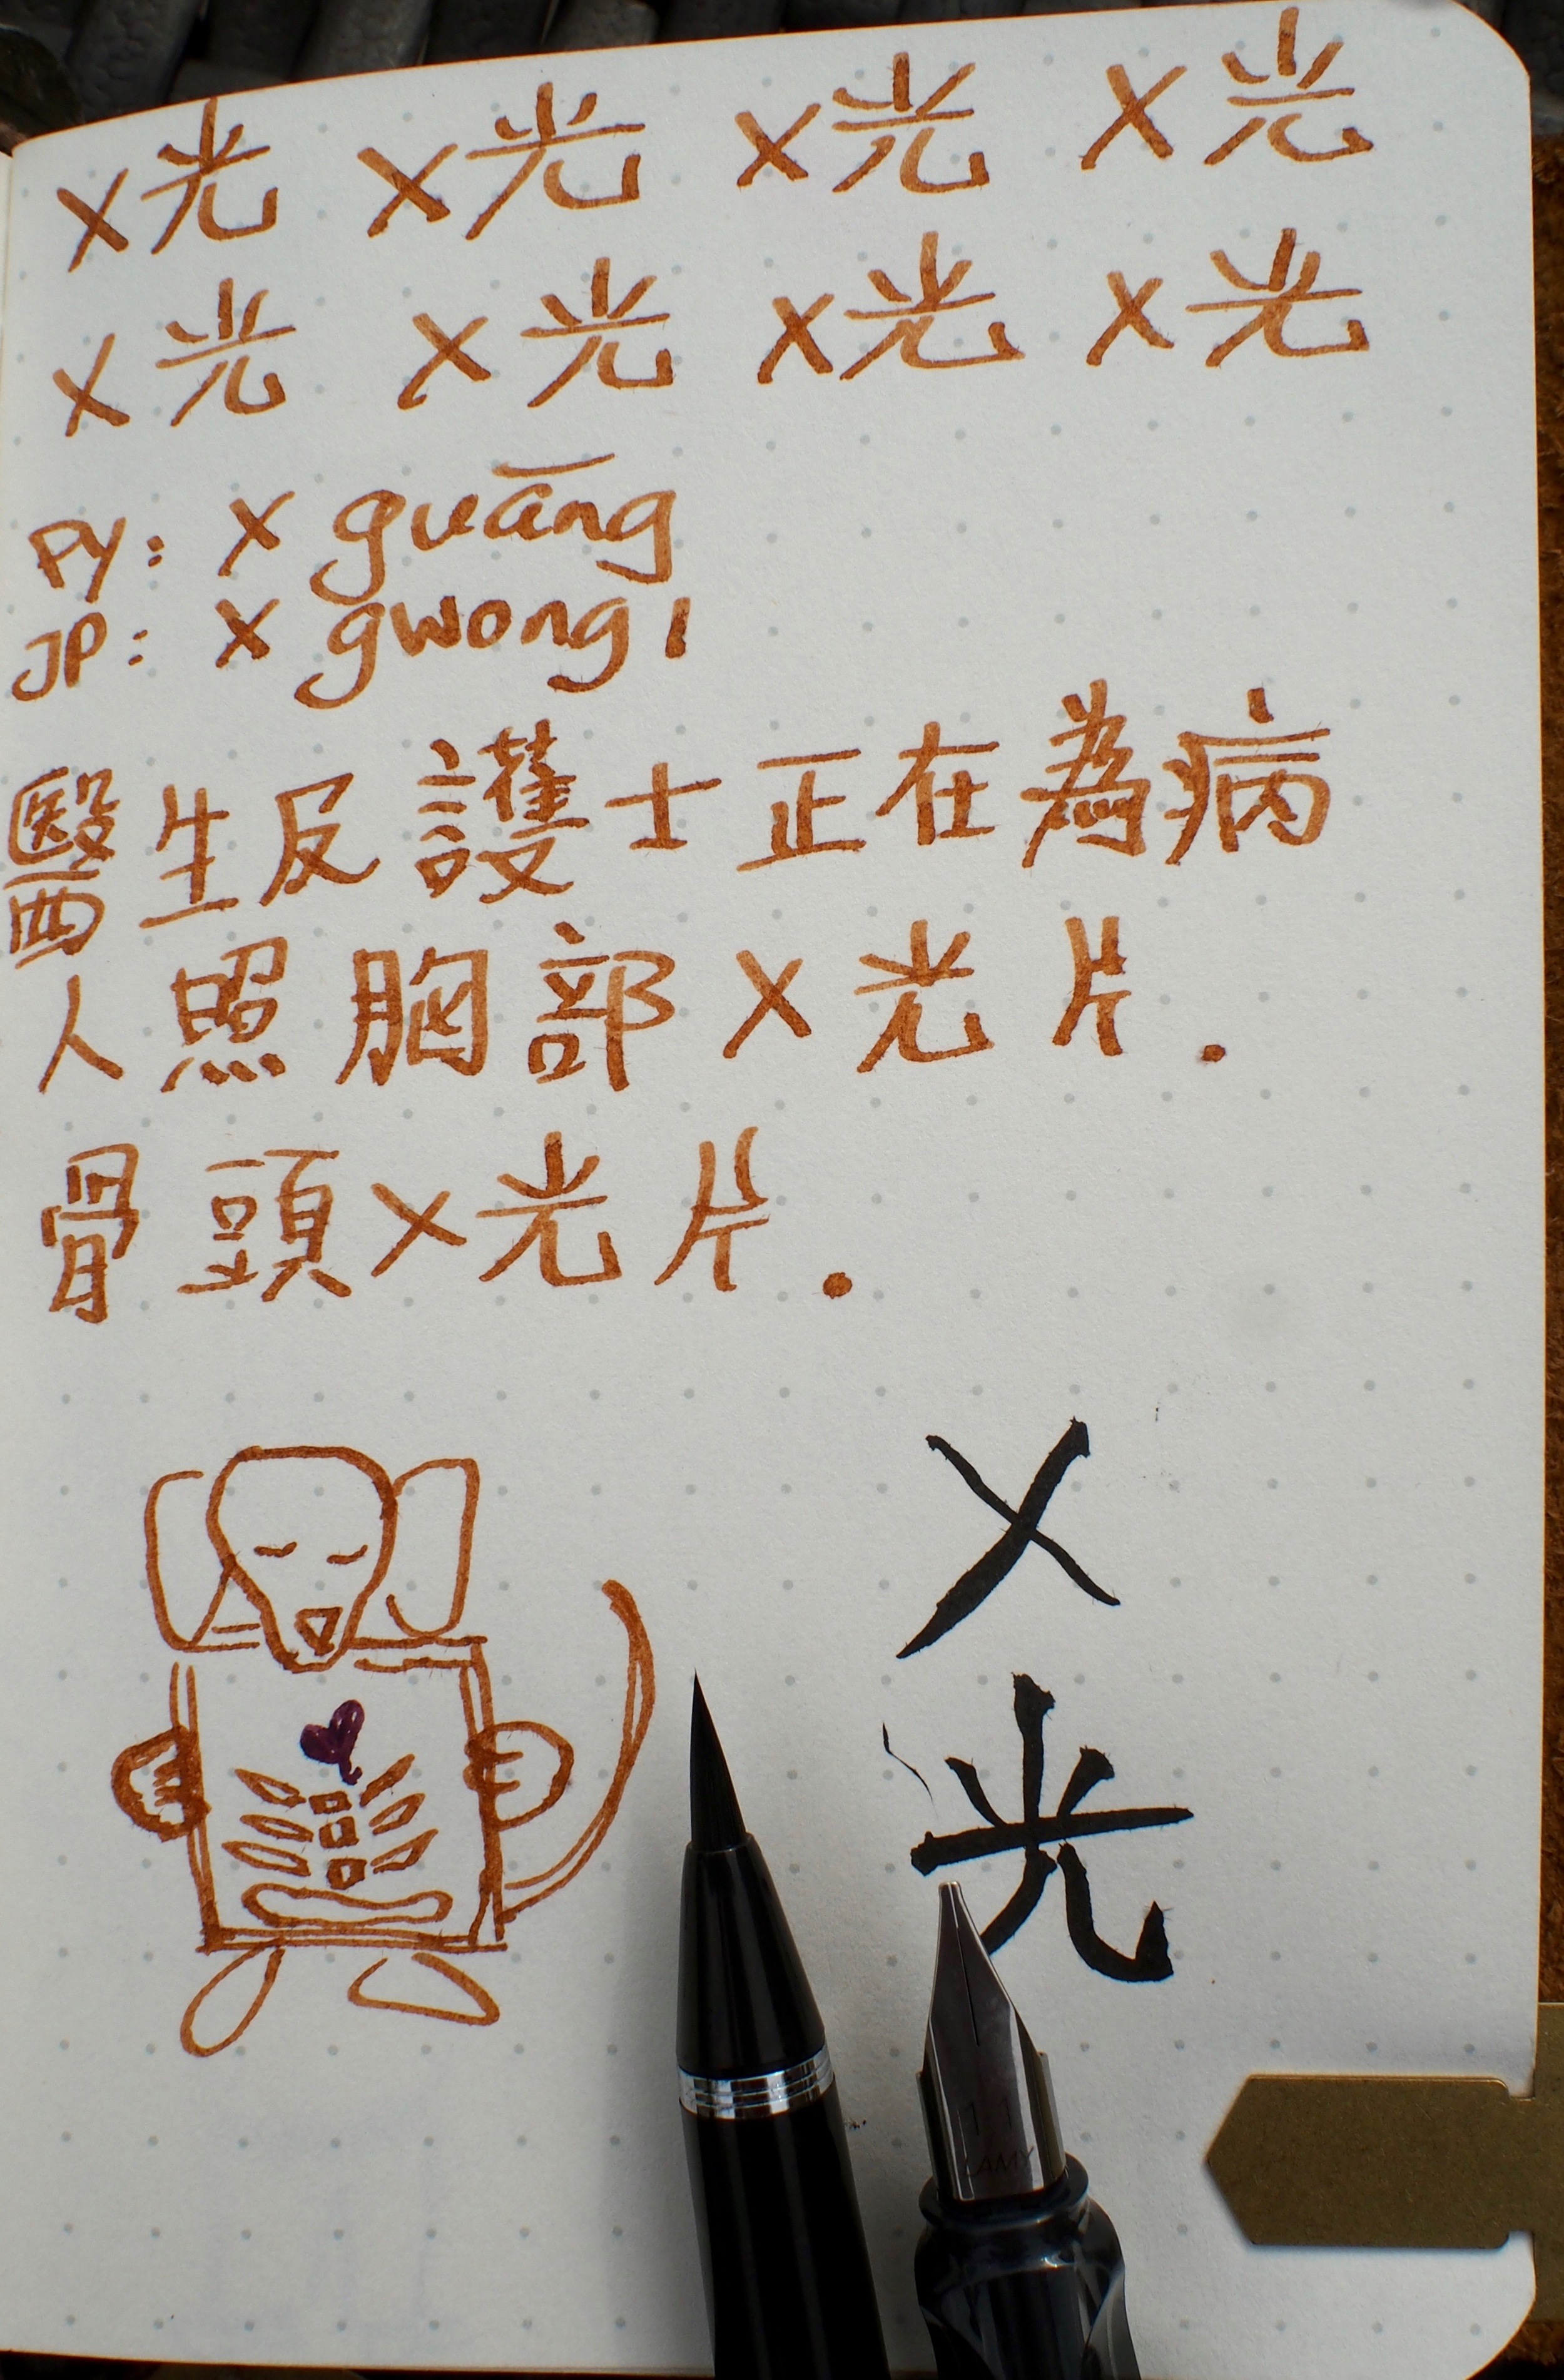 X光 X光 X光 X光
X光 X光 X光 X光
PY: X guāng
JP: X gwong1
醫生反護士正在為病
人照胸部X光片.
骨頭X光片.
X
光
1.1
LAMY